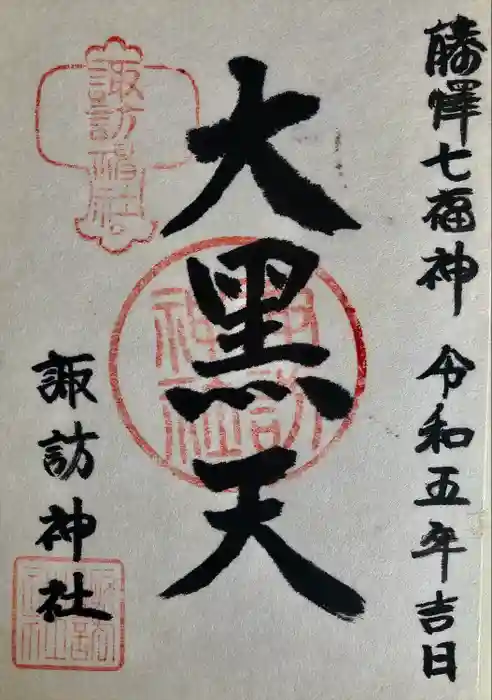 藤澤七福神 令和五年吉日
大黒天
諏訪神社
諏訪神社
諏訪神社